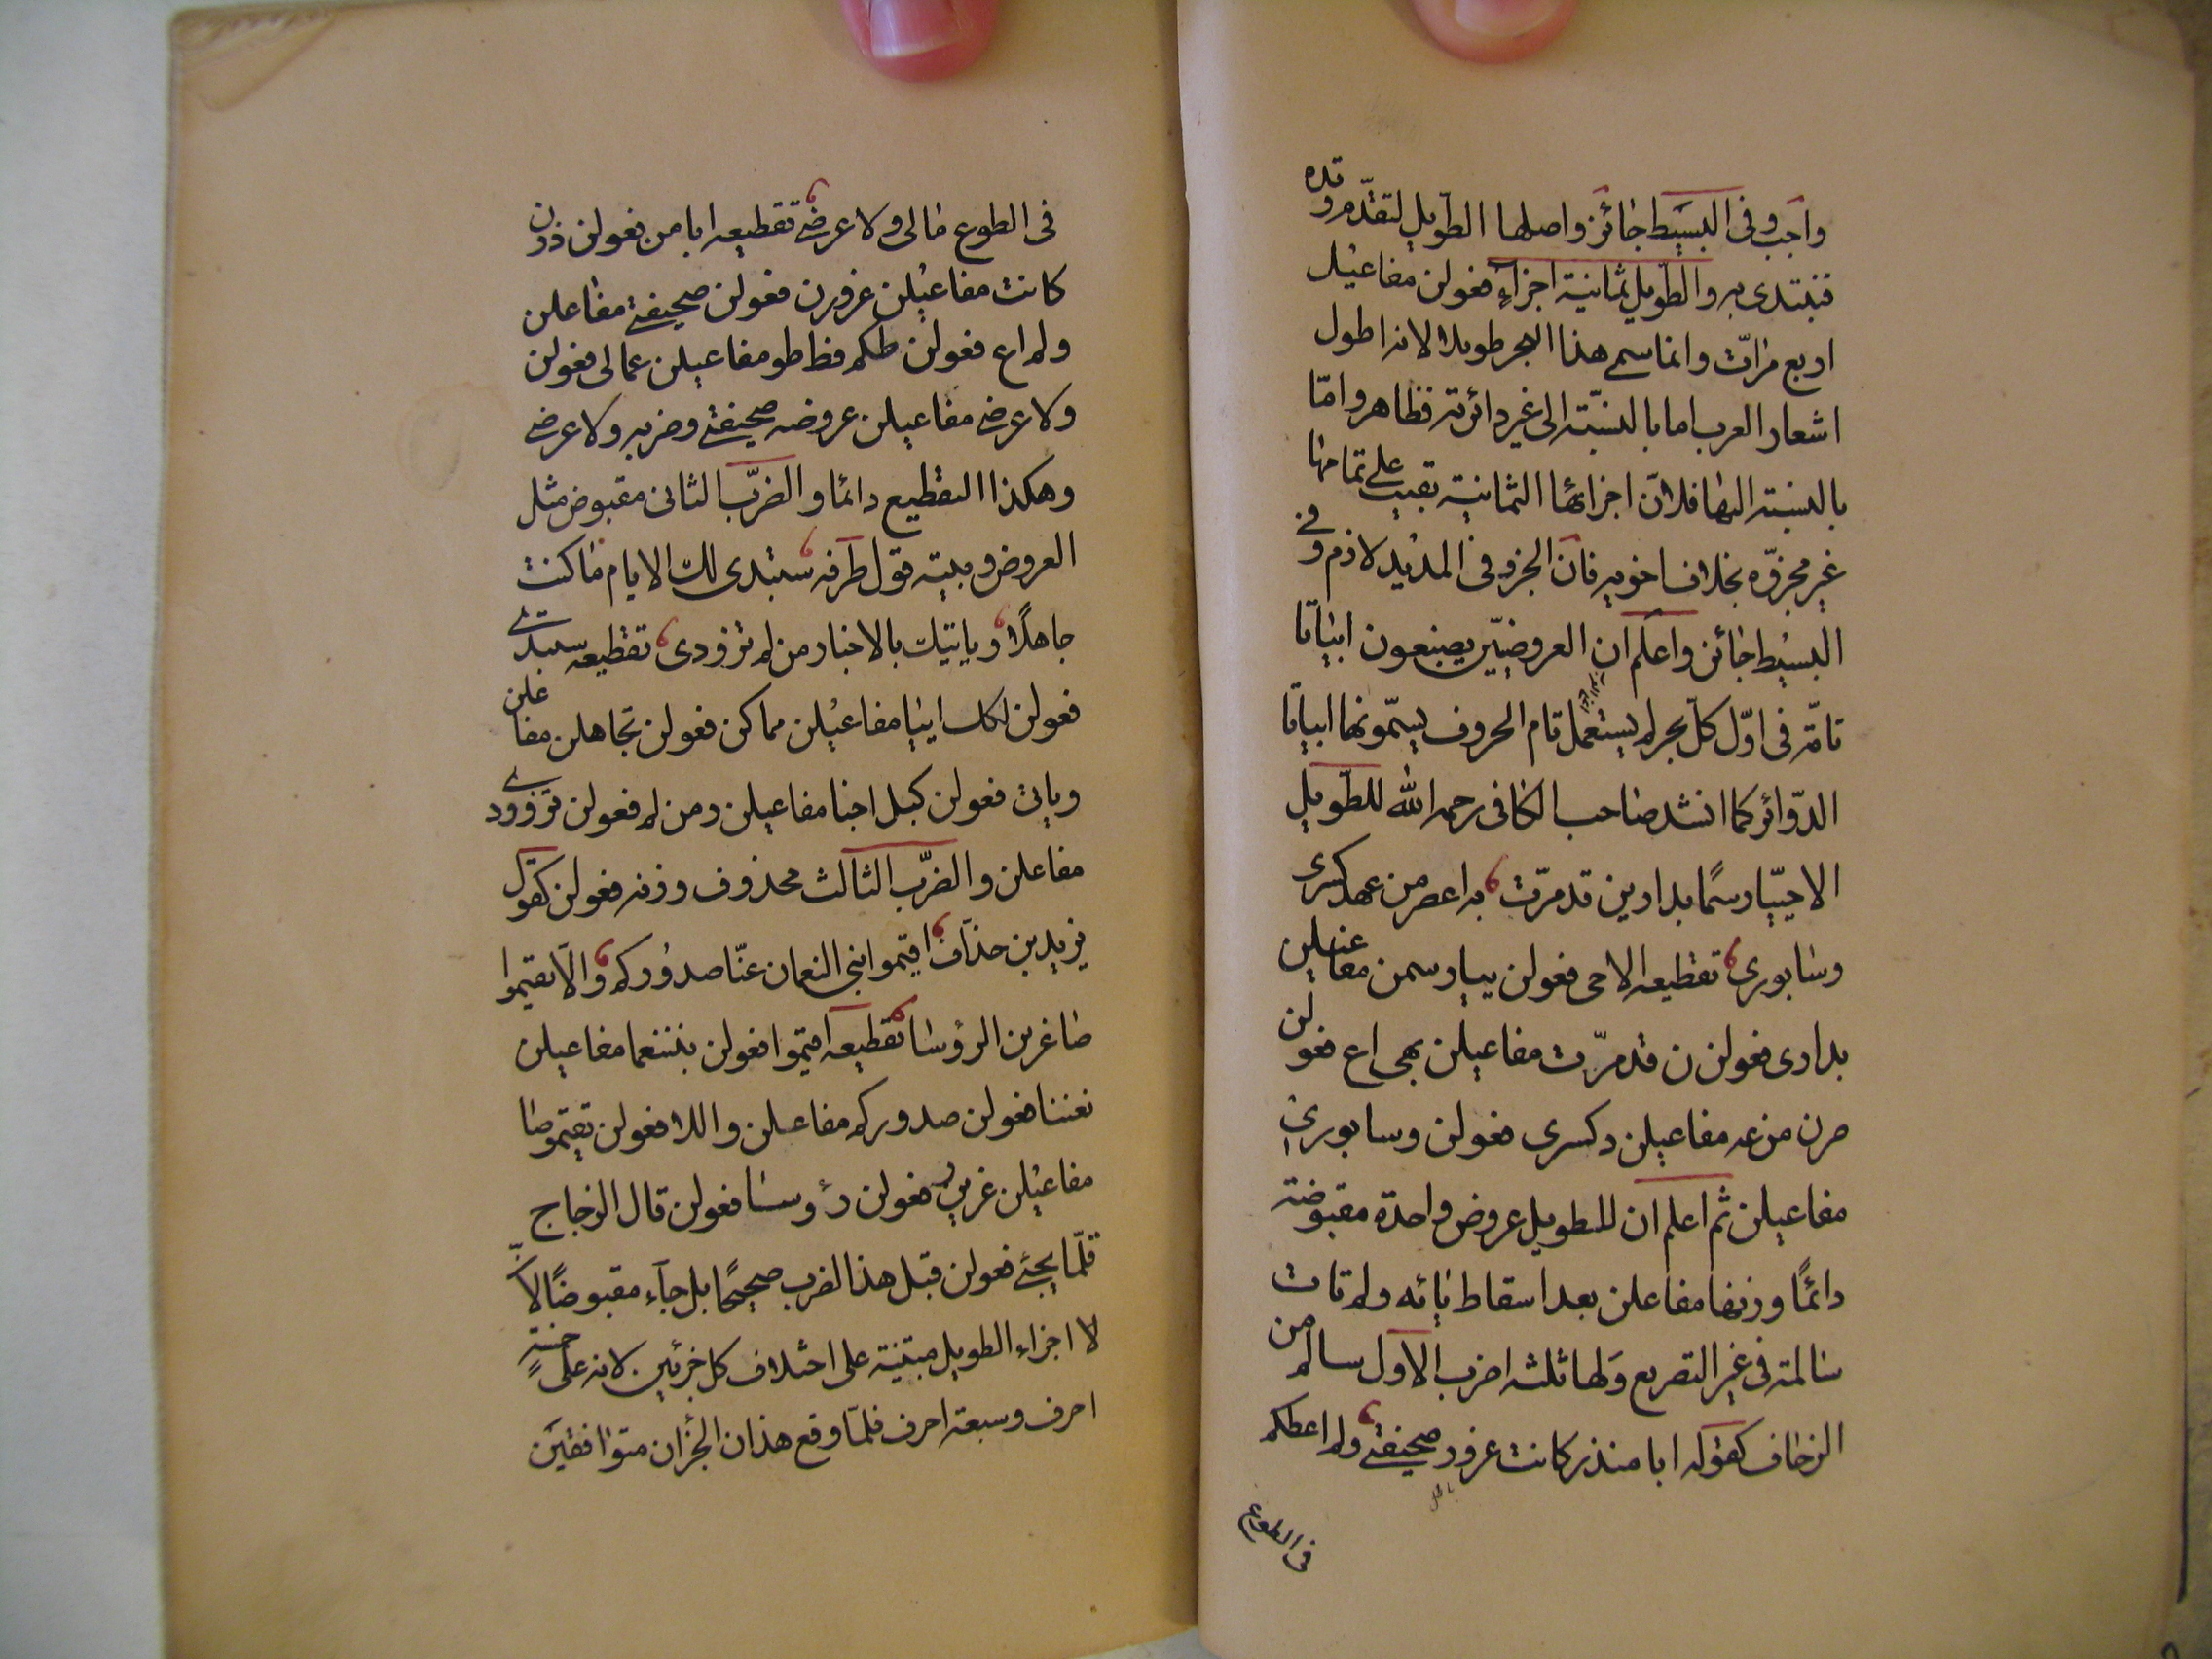 واجب وفى البسيط جائز واصلها الطويل لتقدّمه وقدمه
فنبتدى به والطّويل ثمانية اجزاء فعولن مفاعيلن
اربع مرّات وانما سمى هذا البحر طويلا لانه اطول
اشعار العرب اما بالنسبة الى غير دائرته فظاهر وامّا
بالنسبة اليها فلانّ اجزائها الثمانية بقيت على تمامها
غير مجزوّه بخلاف اخويه فانّ الجزو فى المديد لازم وفى
البسيط جائز واعلم ان العروضيّين يصنعون ابياتا
تامّة فى اوّل كلّ بحر لم يستعمل تام الحروف يسمّونها ابيات
الدّوائر كما انشد صاحب الكافى رحمه الله للطّويل
الا حيّيا رسمًا بدارين قد مرّت به اعصر من عهد كسرى
وسابورى تقطيعه الا حى فعولن ييا رسمن مفاعيلن
بدارى فعولن ن قد مرّت مفاعيلن بهى اع فعولن
صرن من عه مفاعيلن د كسرى فعولن وسابورى
مفاعيلن ثم اعلم ان للطويل عروض واحدة مقبوضة
دائمًا وزنها مفاعلن بعد اسقاط يائه ولم تات
سالمة فى غير التصريع ولها ثلثه اضرب الاول سالم من
الزحاف كقوله ابا منذر كانت غرور صحيفتى ولم اعطكم
فى الطوع
فى الطوع مالى ولا عرضى تقطيعه ابا من فعولن ذرن
كانت مفاعيلن غرورن فعولن صحيفتى مفاعلن
ولم اع فعولن طكم فط طو مفاعيلن ع مالى فعولن
ولا عرضى مفاعيلن عروضه صحيفتى وضربه ولا عرضى
وهكذا التقطيع دائما والضرب الثانى مقبوض مثل
العروض وبيته قول طرفه ستبدى لك الايام ما كنت
جاهلًا وياتيك بالاخبار من لم تزودى تقطيعه ستبدى
فعولن لكل اييا مفاعيلن مما كن فعولن تجاهلن مفاعلن
وياتى فعولن كبل اخبا مفاعيلن رمن لم فعولن تزوودى
مفاعلن والضرب الثالث محذوف وزنه فعولن كقول
يزيد بن حذاق اقيموا بنى النعمان عنّا صدوركم والّا تقيموا
صاغرين الرؤسا تقطيعه اقيموا فعولن بننعما مفاعيلن
نعننا فعولن صدوركم مفاعلن واللا فعولن تقيمو صا
مفاعيلن غرين فعولن رؤوسا فعولن قال الزجاج
قلّما يجئ فعولن قبل هذا الضرب صحيحًا بل جاء مقبوضًا لانّ
لا اجزاء الطويل مبتنية على اختلاف كل جزئين لانه على خمسة
احرف وسبعة احرف فلمّا وقع هذان الجزان متوافقين